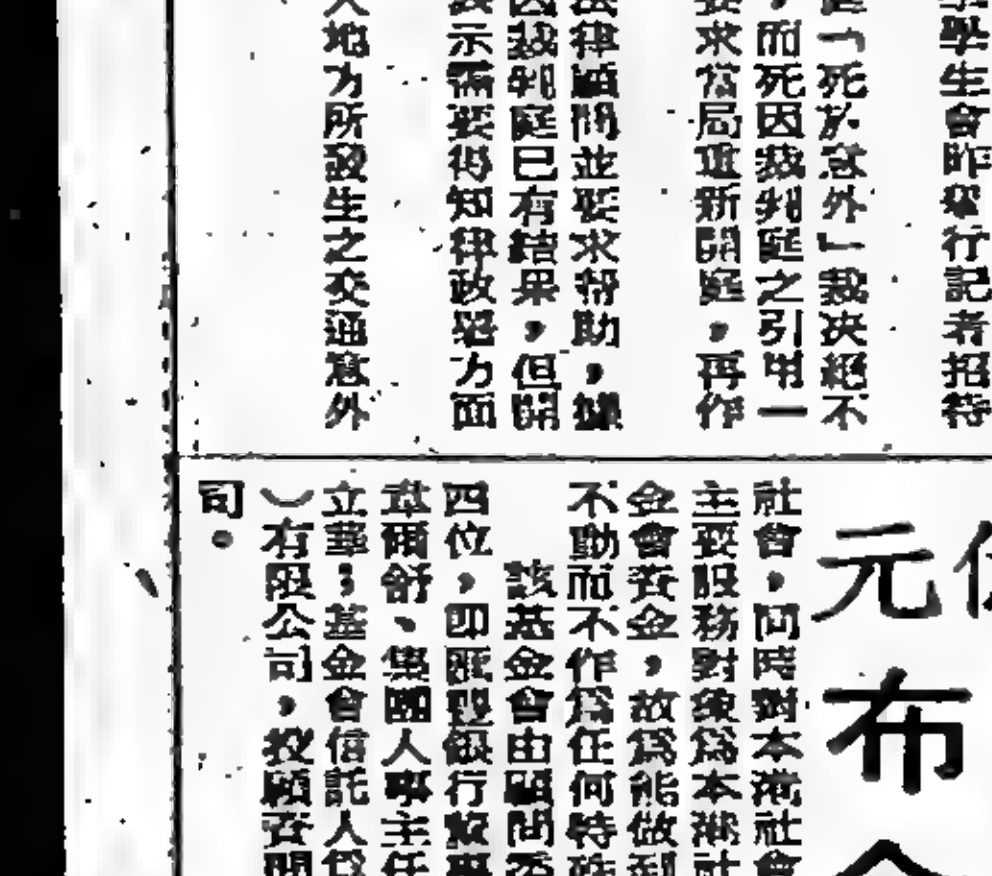 學學生會昨舉行記者招待
「死於意外」裁決絕不
，而死因裁判庭之引用一
要求當局重新開庭，再作
法律顧問並要求幫助，據
因裁判庭已有結果，但開
表示需要得知律政署方面
地方所發生之交通意外
元布
社會，同時對本港社會
主要服務對象為本港社
金會資金，故為能做到
不動而不作為任何特殊
該基金會由顧問委
四位，即匯豐銀行
韋爾舒、集團人事主任
立華；基金會信託人
）有限公司，
司。